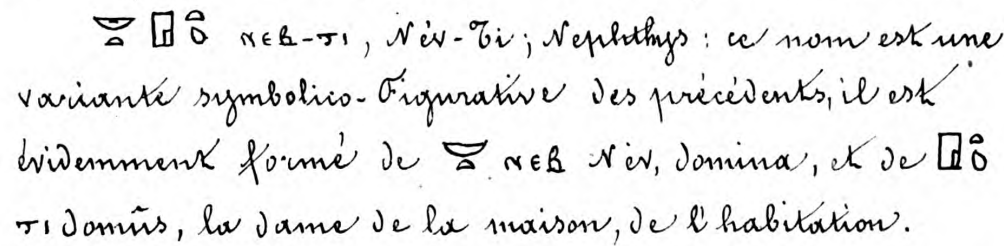 𓎟 𓉗 𓏏 𓆇 ⲛⲉⲃ-ⲧⲓ, Név-Ti; Nephthys: ce nom est une
variante symbolico-Figurative des précédents, il est
évidemment formé de 𓎟 ⲛⲉⲃ Név, domina, et de 𓉗 𓏏 𓆇
ⲧⲓ domûs, la dame de la maison, de l'habitation.